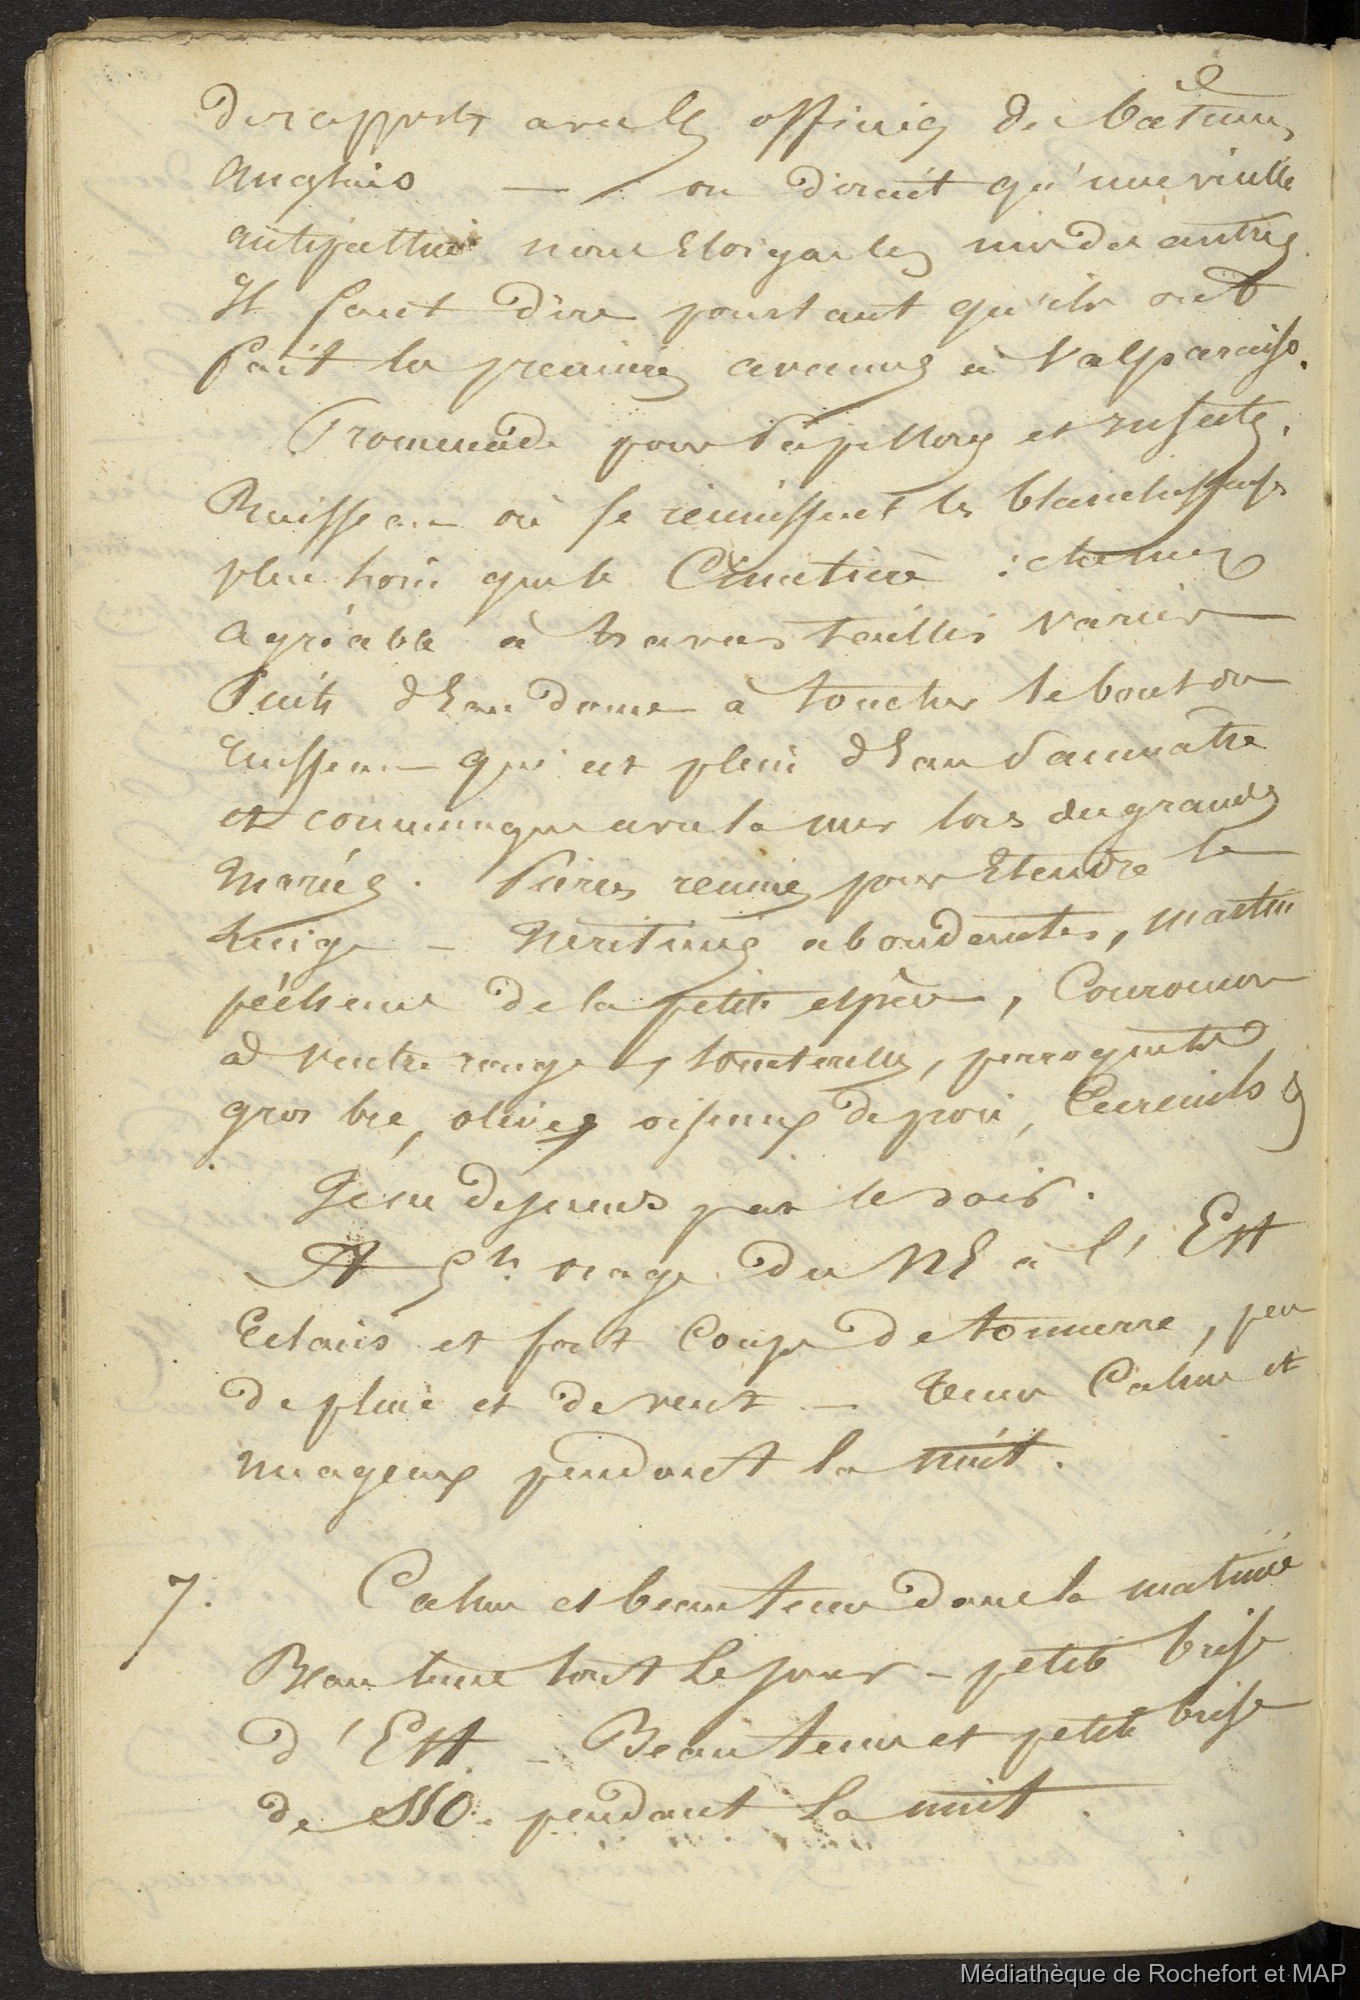 des rapports avec les officiers des bâtimens
anglais — on dirait qu'une vieille
antipathie nous éloigne les uns des autres
Il faut dire pourtant qu'ils ont
fait les premières avances à Valparaiso.
Promenade pour papillons et insectes.
Ruisseau où se réunissent les blanchisseuses
plus loin que le Cimetière : chemin
agréable à travers taillis variés
Puits d'Eau douce à toucher le bout du
ruisseau qui est plein d'Eau Saumâtre
et communique avec la mer lors des grandes
Marées. Pierres réunies pour Etendre le
linge — Néritines abondantes, martin
pêcheur de la petite espèce, Couroucou
à Ventre rouge, tourterelles, perroquets
gros bec, olives, oiseaux de proie, Ecureuils
Je ne descends pas le soir.
A 5h. orage du NE à l'Est
Eclairs et fort coups de tonnerre, peu
de pluie et de vent — tems Calme et
nuageux pendant la nuit.
7. Calme et beau tems dans la matinée
Beau tems tout le jour — petite brise
d'Est. — Beau tems et petite brise
de SSO. pendant la nuit.
Médiathèque de Rochefort et MAP